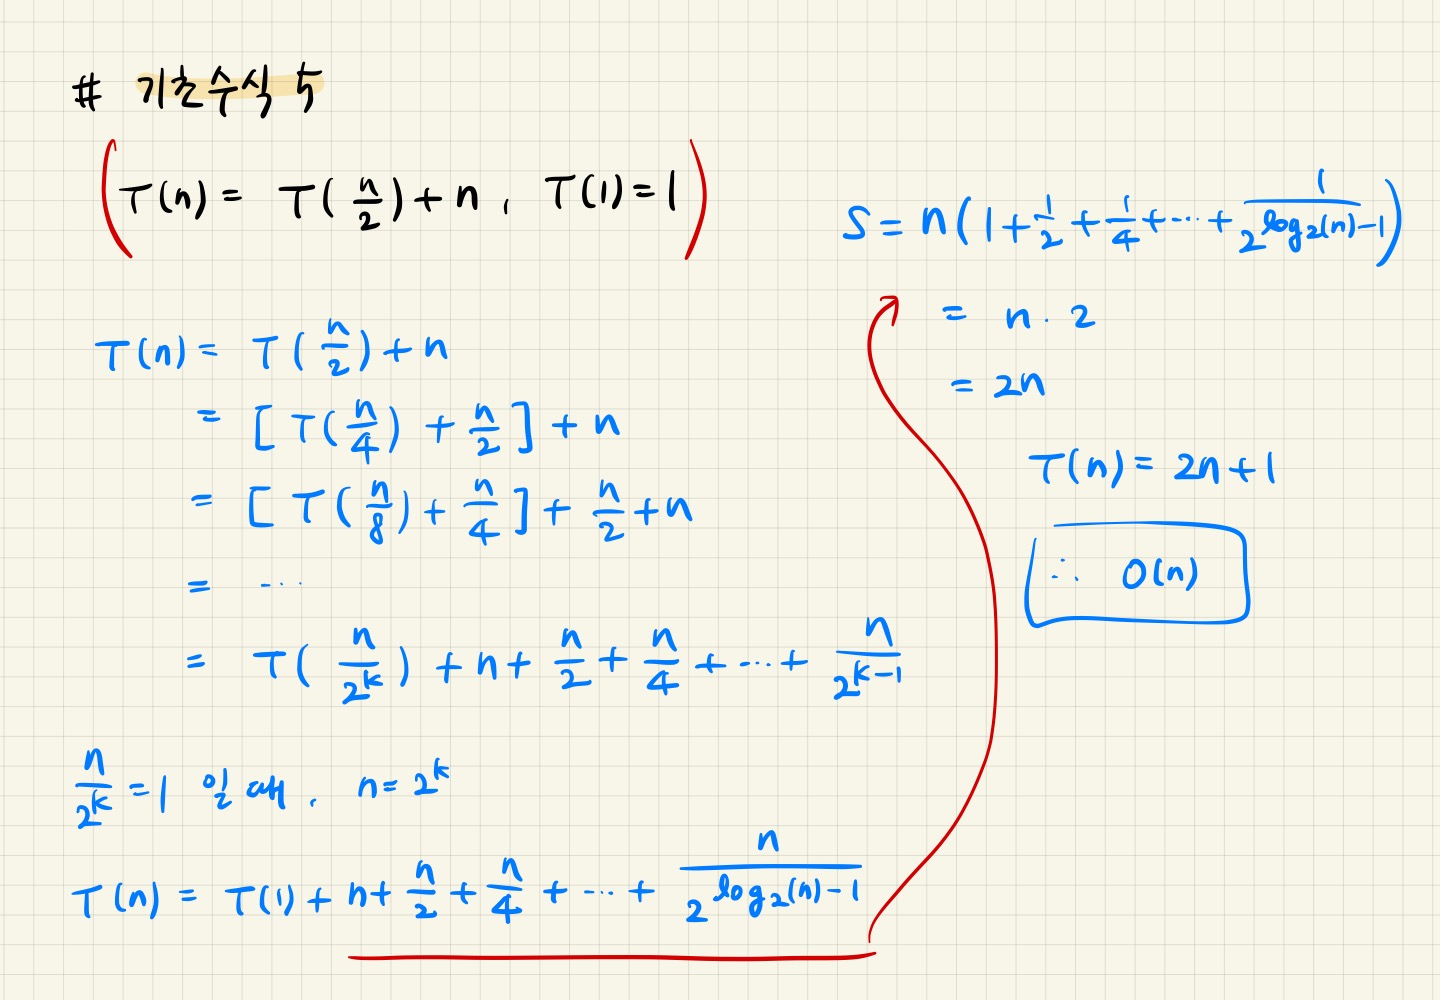 # 기초수식 5
(T(n) = T(n/2) + n, T(1) = 1)
T(n) = T(n/2) + n
= [T(n/4) + n/2] + n
= [T(n/8) + n/4] + n/2 + n
= ...
= T(n/2^k) + n + n/2 + n/4 + ... + n/2^(k-1)
n/2^k = 1 일 때, n = 2^k
T(n) = T(1) + n + n/2 + n/4 + ... + n/2^(log₂(n)-1)
S = n(1 + 1/2 + 1/4 + ... + 1/2^(log₂(n)-1))
= n · 2
= 2n
T(n) = 2n + 1
∴ O(n)